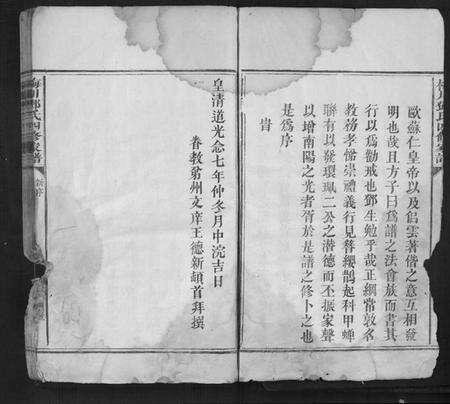 歐蘇仁皇帝以及倡雲著偕之意互相發
明也哉且方子曰爲譜之法會族而書其
行以爲勸戒也鄧生勉乎哉正綱常敦名
教務孝悌崇禮義行見簪纓鵲起科甲蟬
聯有以發環珮二公之潛德而丕振家聲
以增南陽之光者胥於是譜之修卜之也
是爲序
旹
皇清道光念七年仲冬月中浣吉日
眷教弟州文庠王德新頓首拜撰
鄧氏四修家譜
序